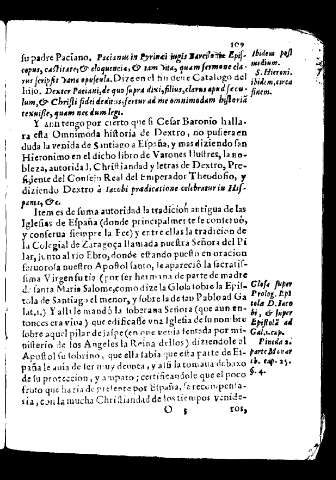 109
su padre Paciano. Pacianus in Pyrinei iugis Barcinonæ Epis-
copus, castitate, & eloquencia, & tam vita, quam sermone cla-
rus scripsit varia opuscula. Dize en el fin deste Catalogo del
hijo. Dexter Paciani, de quo supra dixi, filius, clarus apud secu-
lum, & Christi fidei deditus. fertur ad me omnimodam historiã
texuisse, quam nec dum legi.
Y aun tengo por cierto que si Cesar Baronio halla-
ra esta Omnimoda historia de Dextro, no pusiera en
duda la venida de Santiago a España, y mas diziendo san
Hieronimo en el dicho libro de Varones Ilustres, la no-
bleza, autoridad, Christiandad y letras de Dextro, Pre-
sidente del Consejo Real del Emperador Theodosio, y
diziendo Dextro à Iacobi prædicatione celebratur in His-
pania, &c.
Item es de suma autoridad la tradicion antigua de las
Iglesias de España (donde principalmente se conseruò,
y conserua siempre la Fee) y entre ellas la tradicion de
la Colegial de Zaragoça llamada nuestra Señora del Pi-
lar, junto al rio Ebro, donde estando puesto en oracion
feruorosa nuestro Apostol santo, le apareciò la sacratis-
sima Virgen su tia (por ser hermana de parte de madre
de santa Maria Salome, como dize la Glosa sobre la Epis-
tola de Santiago el menor, y sobre la de san Pablo ad Ga-
lat. 1.) Y alli le mandò la soberana Señora (que aun en-
tonces era viua) que edificasse vna Iglesia de su nombre
sobre aquel pilar de jaspe (en que venia sentada por mi-
nisterio de los Angeles la Reina dellos) diziendole al
Apostol su sobrino, que ella sabia que esta parte de Es-
paña le auia de ser muy deuota, y assi la tomaua debaxo
de su proteccion, y amparo; certificandole que el poco
fruto que hazia de presente por España, se recompenta-
ria, con la mucha Christiandad de los tiempos venide-
O 3
ros,
ibidem post
medium.
S. Hieroni.
ibidem, circa
finem.
Glosa super
Prolog. Epi
tola D. Iaco
bi, & super
Epistolã ad
Gal. 1. cap.
Pineda 2.
parte Monar
ch. cap. 25.
§. 4.